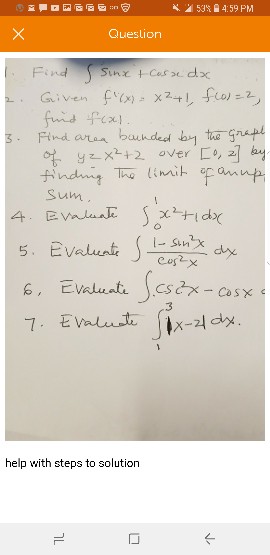 53% 4:59 PM
Question
1. Find ∫ sinx + cosx dx
2. Given f'(x) = x²+1, f(0)=2,
find f(x).
3. Find area bounded by the graph
of y=x²+2 over [0, 2] by
finding the limit of an up
sum.
4. Evaluate ∫₀¹ x²+1 dx
5. Evaluate ∫ 1- sin²x / cos²x dx
6, Evaluate ∫ csc²x - cosx
7. Evaluate ∫₁³ |x-2| dx.
help with steps to solution